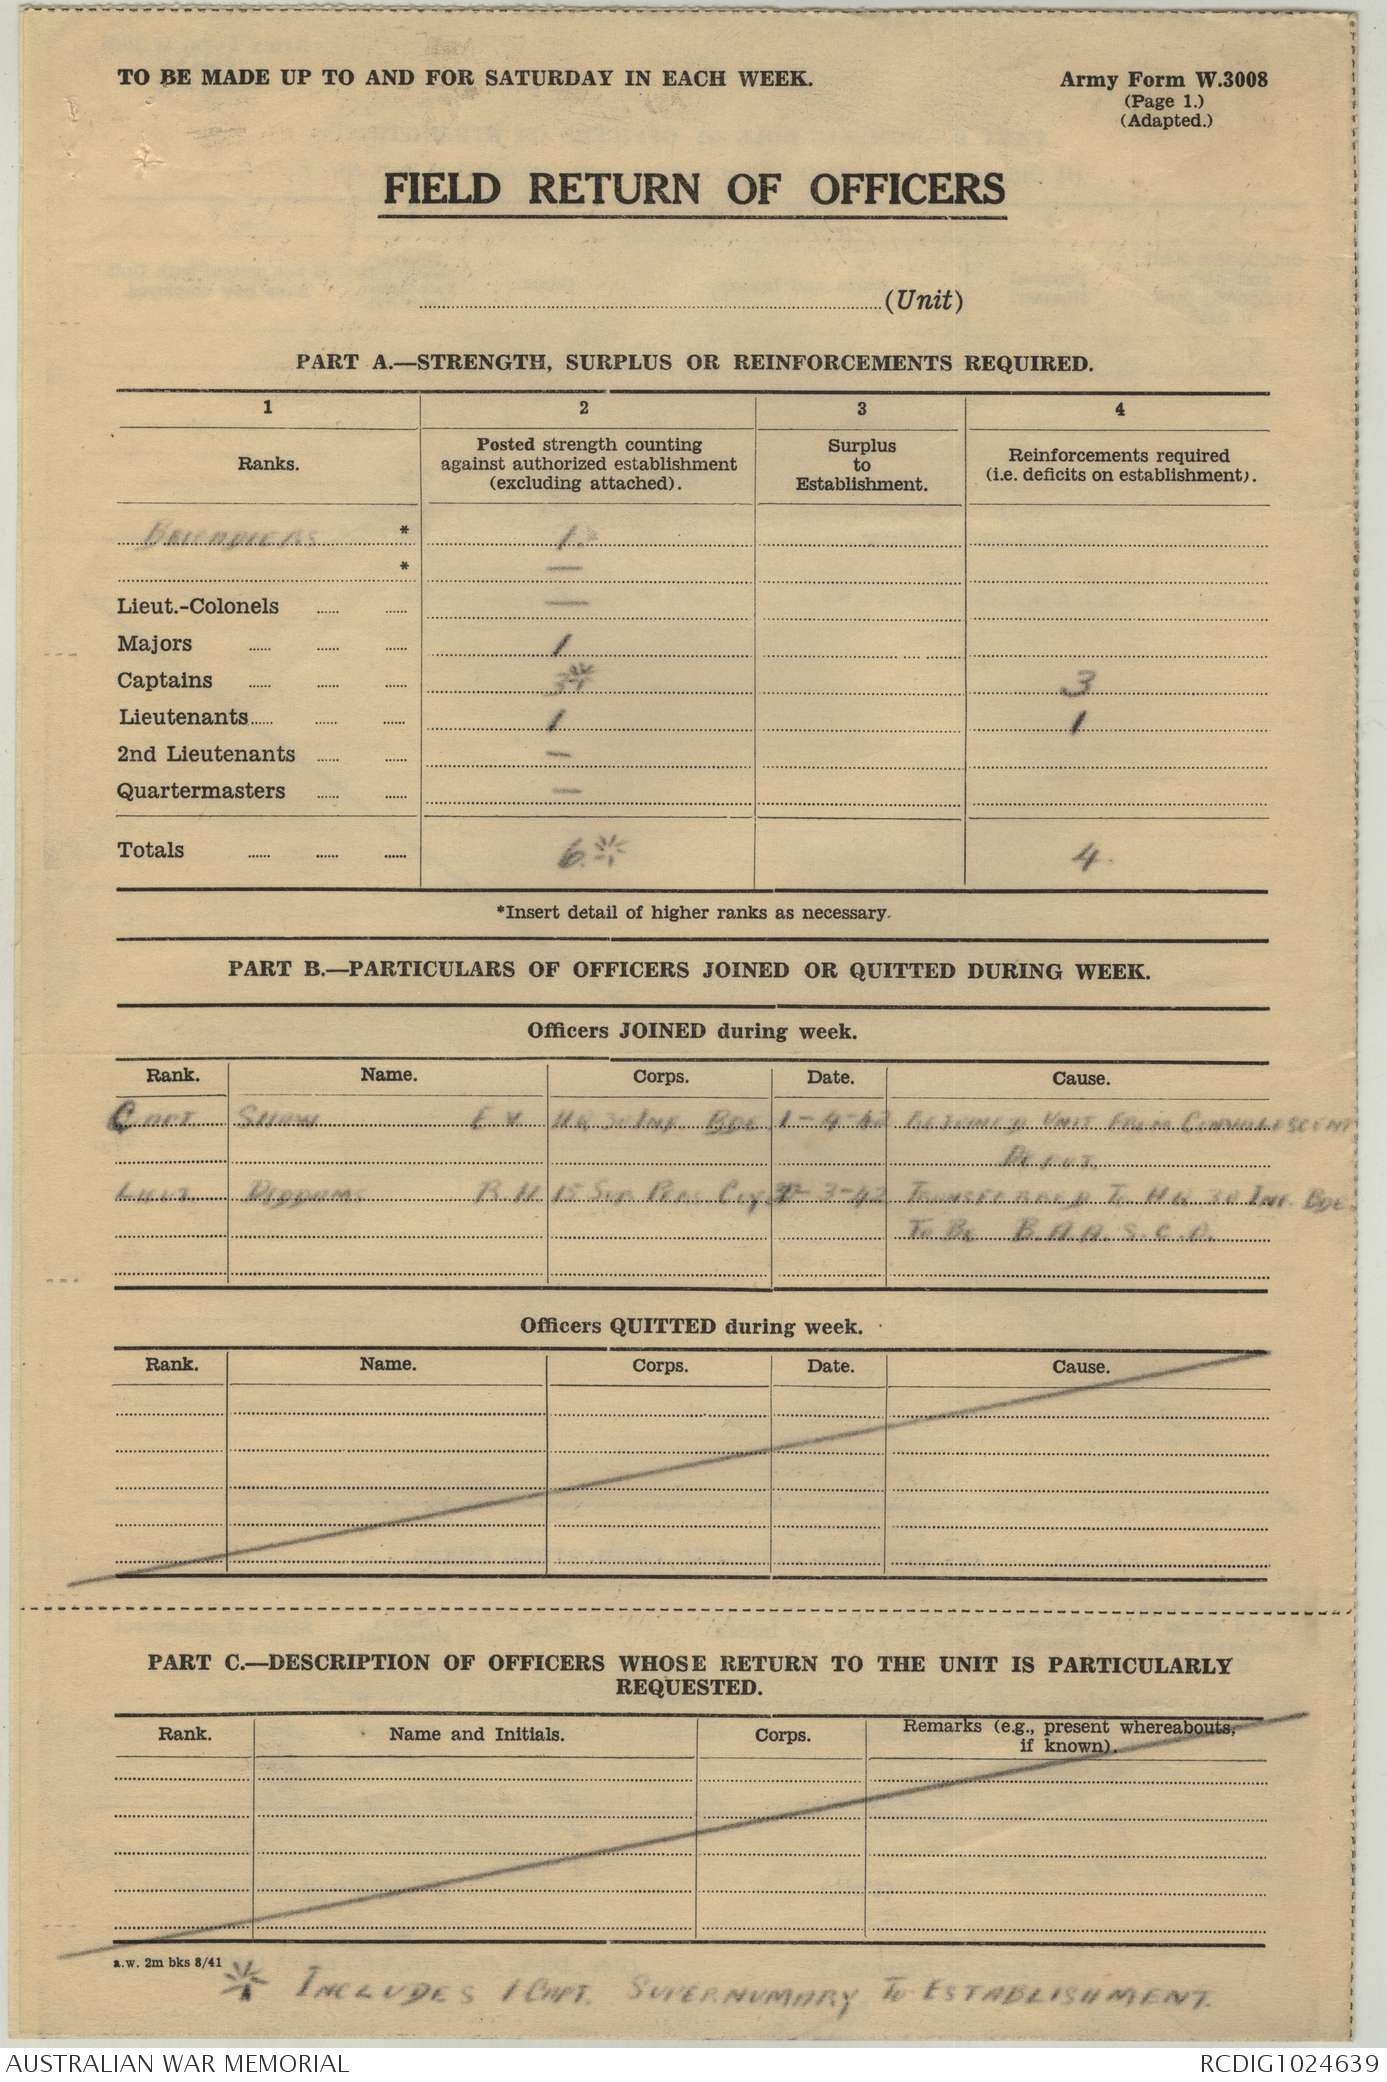 TO BE MADE UP TO AND FOR SATURDAY IN EACH WEEK.
Army Form W.3008
(Page 1.)
(Adapted.)
FIELD RETURN OF OFFICERS
(Unit)
PART A.—STRENGTH, SURPLUS OR REINFORCEMENTS REQUIRED.
1 2 3 4
Ranks.
Posted strength counting
against authorized establishment
(excluding attached).
Surplus
to
Establishment.
Reinforcements required
(i.e. deficits on establishment).
BRIGADIERS * 1.*
* —
Lieut.-Colonels —
Majors 1
Captains 3* 3
Lieutenants 1 1
2nd Lieutenants —
Quartermasters —
Totals 6* 4.
*Insert detail of higher ranks as necessary.
PART B.—PARTICULARS OF OFFICERS JOINED OR QUITTED DURING WEEK.
Officers JOINED during week.
Rank. Name. Corps. Date. Cause.
CAPT SHAW E.V. HQ 30 INF. BDE 1-4-42 REJOINED UNIT FROM CONVALESCENT
DEPOT.
LIEUT DIDDAMS R H 15 SUP PERS. COY -3-42 TRANSFERRED TO HQ 30 INF. BDE.
TO BE B.A.A.S.C.O.
Officers QUITTED during week.
Rank. Name. Corps. Date. Cause.
PART C.—DESCRIPTION OF OFFICERS WHOSE RETURN TO THE UNIT IS PARTICULARLY
REQUESTED.
Rank. Name and Initials. Corps. Remarks (e.g., present whereabouts,
if known).
a.w. 2m bks 8/41
* INCLUDES 1 CAPT. SUPERNUMARY TO ESTABLISHMENT.
AUSTRALIAN WAR MEMORIAL
RCDIG1024639